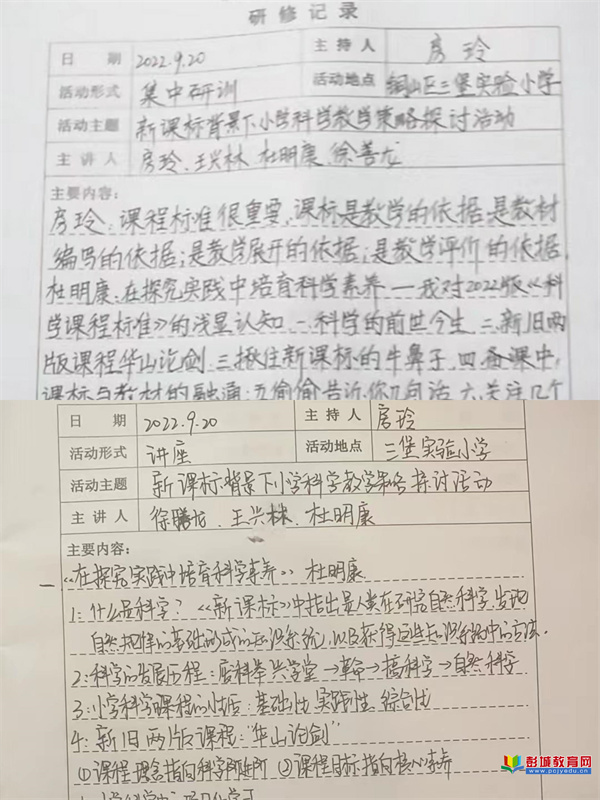 研修记录
日 期 2022.9.20 主持人 房玲
活动形式 集中研训 活动地点 铜山区三堡实验小学
活动主题 新课标背景下小学科学教学策略探讨活动
主讲人 房玲、王兴林 杜明康 徐善龙
主要内容:
房玲:课程标准很重要,课标是教学的依据,是教材
编写的依据;是教学展开的依据;是教学评价的依据.
杜明康:在探究实践中培育科学素养——我对2022版《科
学课程标准》的浅显认知 一.科学的前世今生 二.新旧两
版课程华山论剑.三揪住新课标的牛鼻子.四备课中,
课标与教材的融通;五偷偷告诉你几句话 六.关注几个
日 期 2022.9.20 主持人 房玲
活动形式 讲座 活动地点 三堡实验小学
活动主题 新课标背景下小学科学教学策略探讨活动
主讲人 徐龙、王兴林、杜明康
主要内容:
一、《在探究实践中培育科学素养》 杜明康
1:什么是科学?《新课标》中指出是人类在研究自然科学,发现
自然规律的基础形成的知识系统,以及获得这些知识系统中的方法.
2:科学的发展历程:废科举兴学堂→革命→搞科学→自然科学
3:小学科学课程的性质:基础性 实践性 综合性
4:新旧两版课程:"华山论剑"
①课程理念指向科学 ②课程目标指向核心素养
彭城教育网
www.pcjyedu.cn